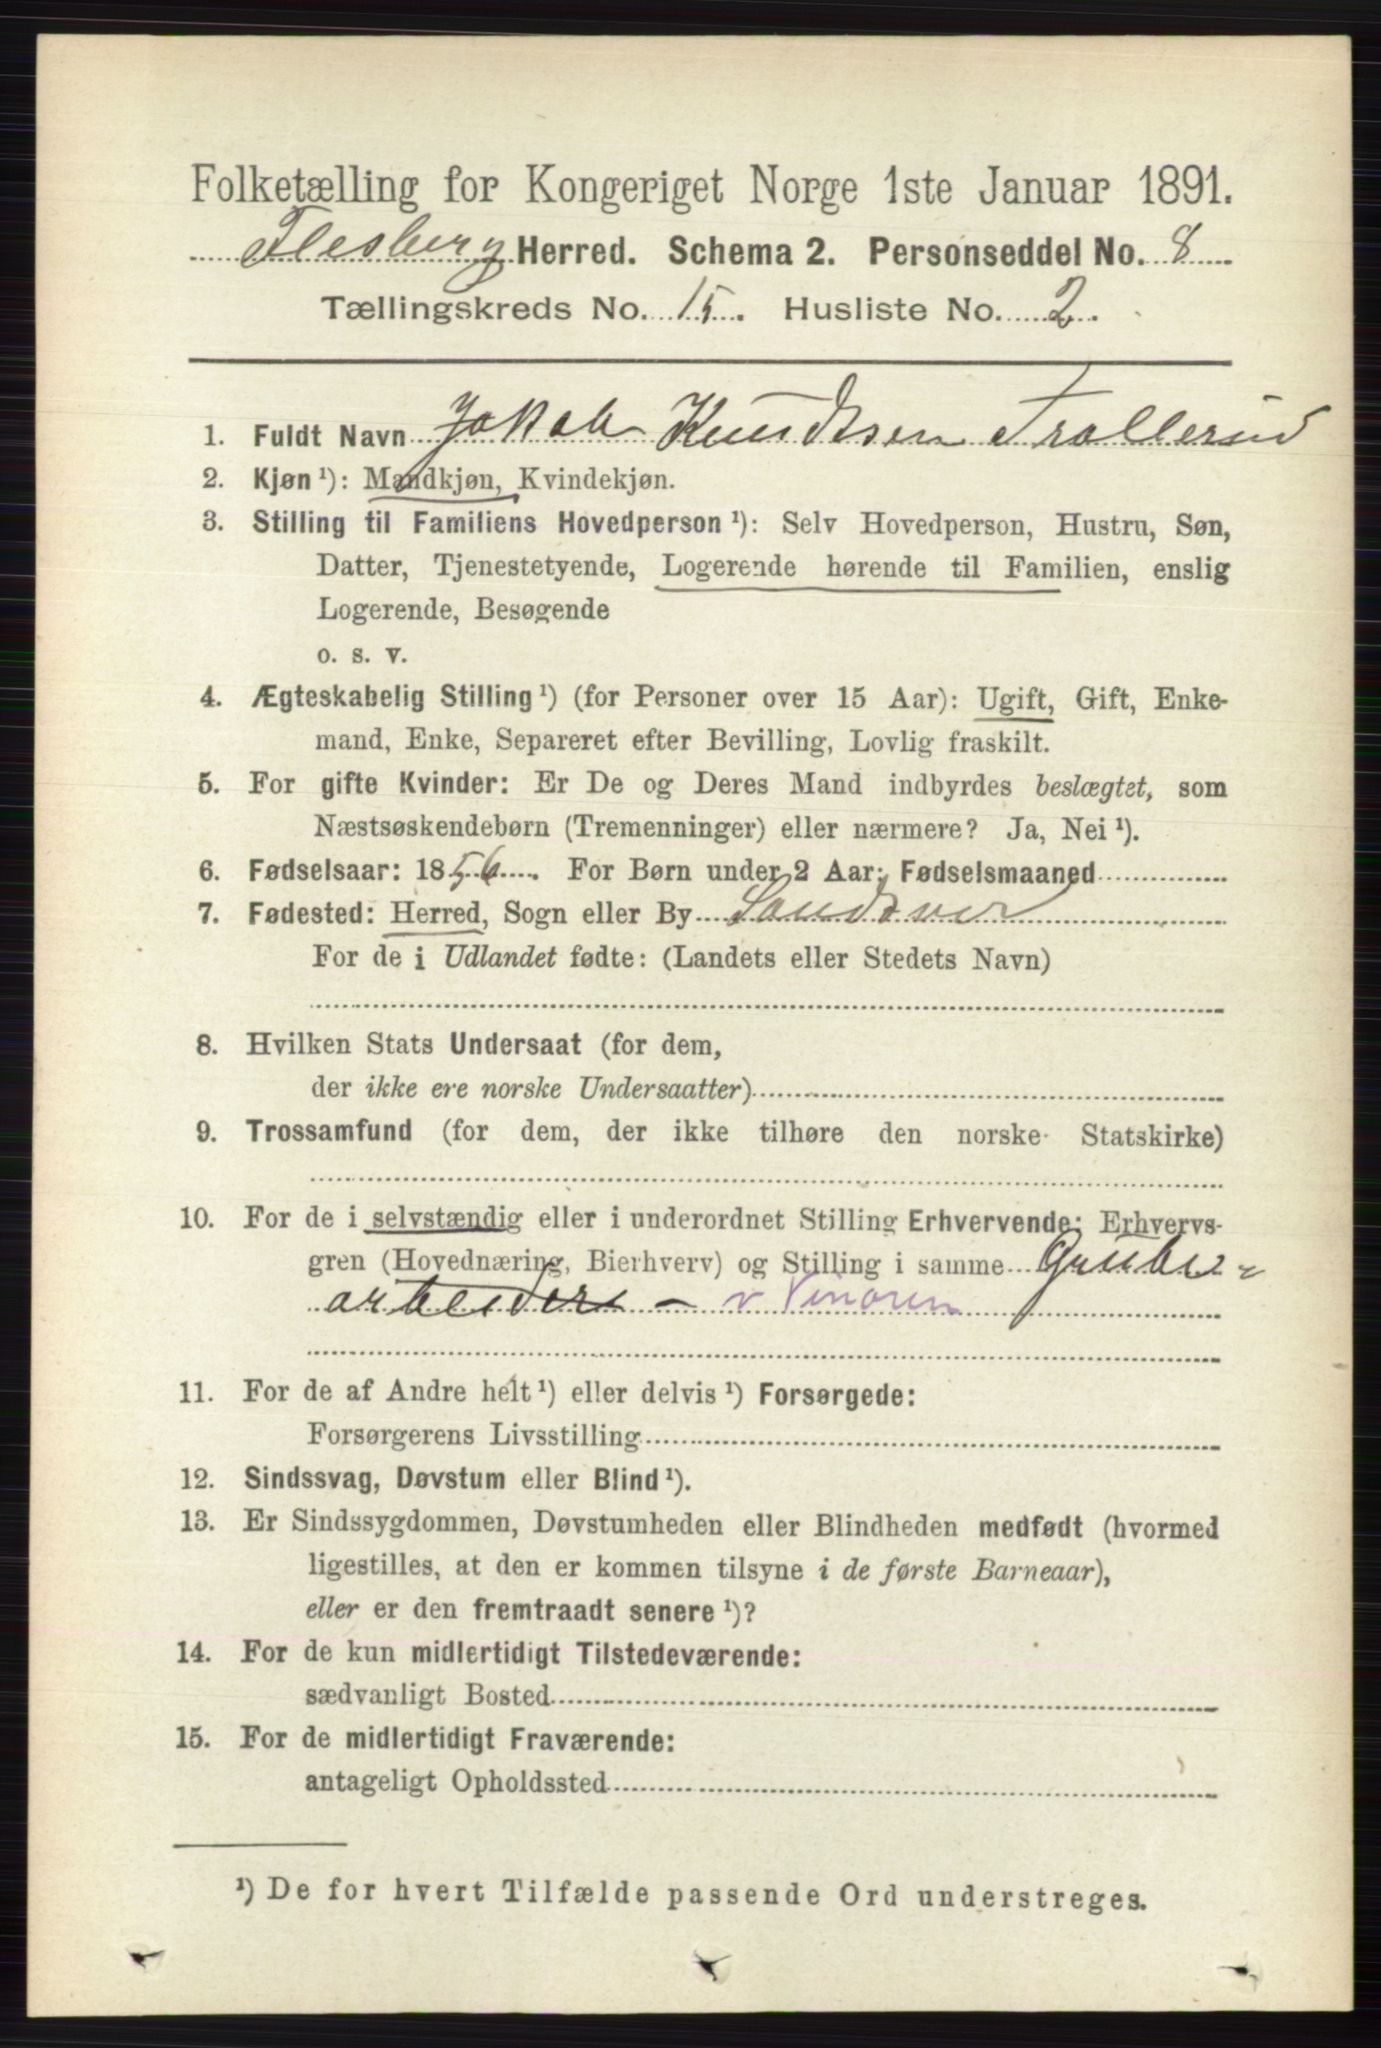 Folketælling for Kongeriget Norge 1ste Januar 1891.
Flesberg Herred. Schema 2. Personseddel No. 8
Tællingskreds No. 15. Husliste No. 2.
1. Fuldt Navn Jakob Knudsen Trollerud
2. Kjøn ¹): Mandkjøn, Kvindekjøn.
3. Stilling til Familiens Hovedperson ¹): Selv Hovedperson, Hustru, Søn,
Datter, Tjenestetyende, Logerende hørende til Familien, enslig
Logerende, Besøgende
o. s. v.
4. Ægteskabelig Stilling ¹) (for Personer over 15 Aar): Ugift, Gift, Enke-
mand, Enke, Separeret efter Bevilling, Lovlig fraskilt.
5. For gifte Kvinder: Er De og Deres Mand indbyrdes beslægtet, som
Næstsøskendebørn (Tremenninger) eller nærmere? Ja, Nei ¹).
6. Fødselsaar: 1856. For Børn under 2 Aar: Fødselsmaaned
7. Fødested: Herred, Sogn eller By Sandsver
For de i Udlandet fødte: (Landets eller Stedets Navn)
8. Hvilken Stats Undersaat (for dem,
der ikke ere norske Undersaatter)
9. Trossamfund (for dem, der ikke tilhøre den norske Statskirke)
10. For de i selvstændig eller i underordnet Stilling Erhvervende: Erhvervs-
gren (Hovednæring, Bierhverv) og Stilling i samme Grube-
arbeider - v Vinoren
11. For de af Andre helt ¹) eller delvis ¹) Forsørgede:
Forsørgerens Livsstilling
12. Sindssvag, Døvstum eller Blind ¹).
13. Er Sindssygdommen, Døvstumheden eller Blindheden medfødt (hvormed
ligestilles, at den er kommen tilsyne i de første Barneaar),
eller er den fremtraadt senere ¹)?
14. For de kun midlertidigt Tilstedeværende:
sædvanligt Bosted
15. For de midlertidigt Fraværende:
antageligt Opholdssted
¹) De for hvert Tilfælde passende Ord understreges.